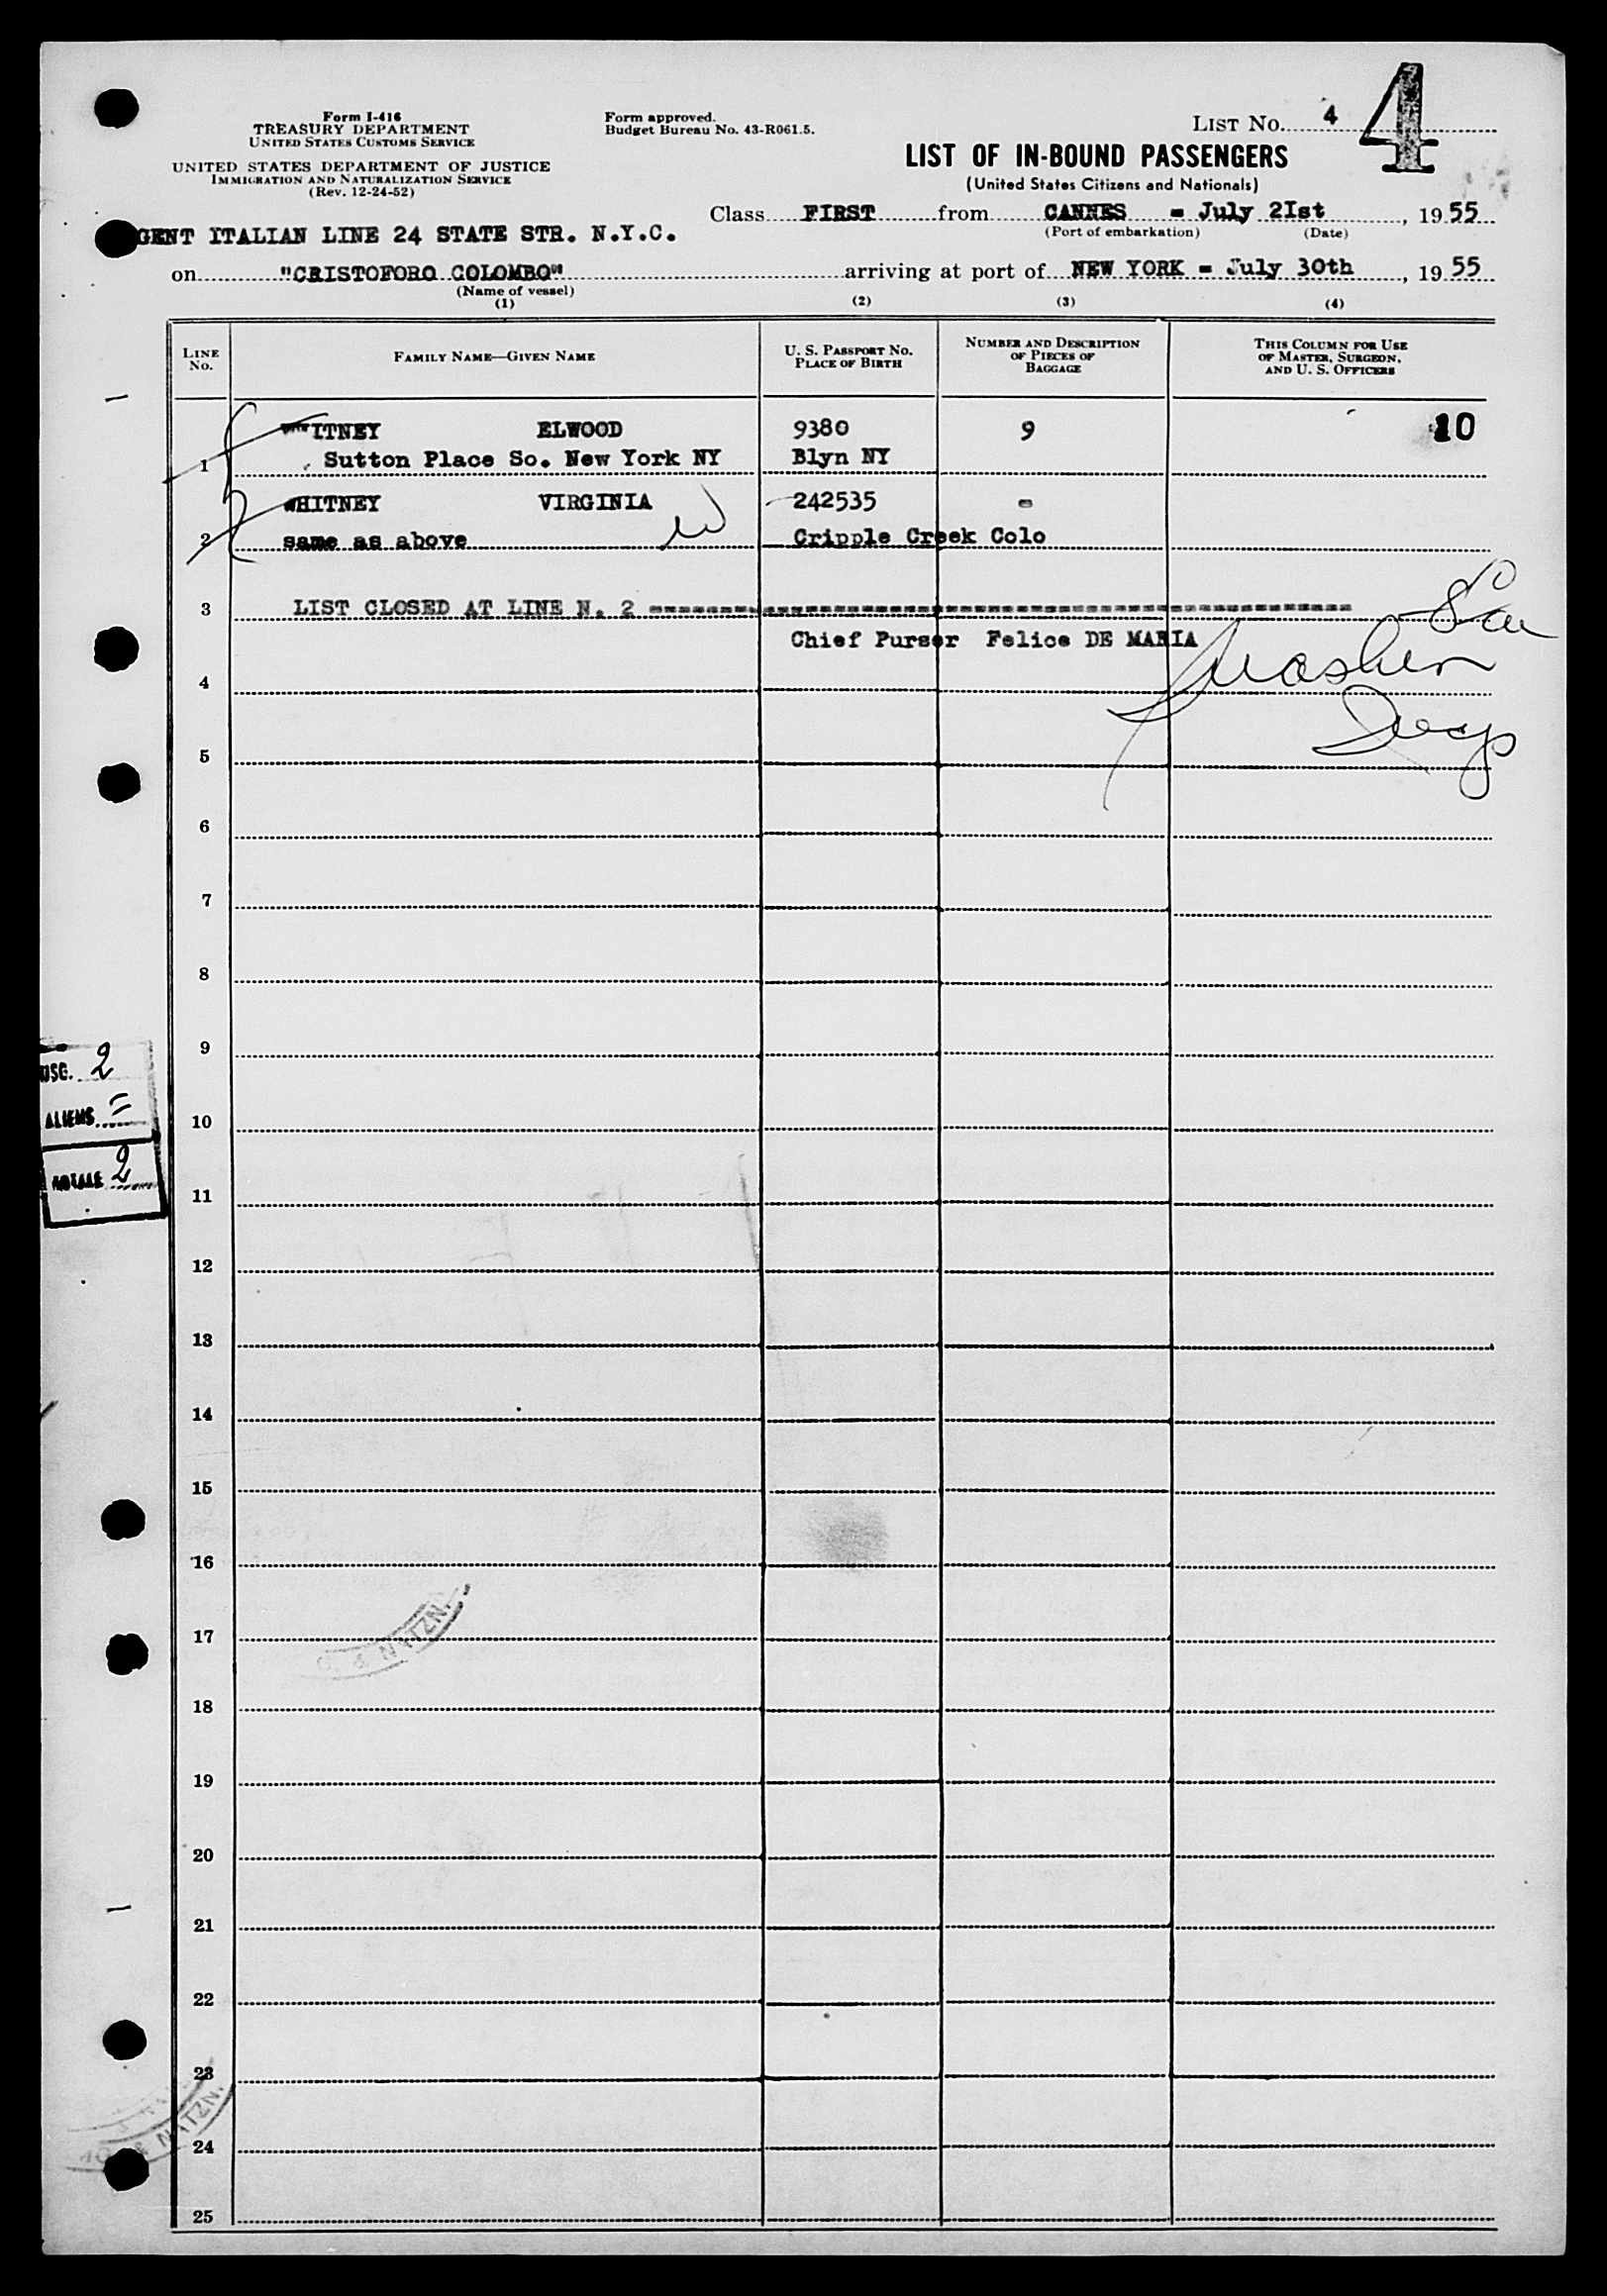 Form I-416
TREASURY DEPARTMENT
UNITED STATES CUSTOMS SERVICE
UNITED STATES DEPARTMENT OF JUSTICE
IMMIGRATION AND NATURALIZATION SERVICE
(Rev. 12-24-52)
Form approved.
Budget Bureau No. 43-R061.5.
LIST NO. 4
4
LIST OF IN-BOUND PASSENGERS
(United States Citizens and Nationals)
Class FIRST from CANNES = July 2Ist, 1955
(Port of embarkation) (Date)
GENT ITALIAN LINE 24 STATE STR. N.Y.C.
on "CRISTOFORO COLOMBO" arriving at port of NEW YORK = July 30th, 1955
(Name of vessel)
(1) (2) (3) (4)
LINE NO. FAMILY NAME—GIVEN NAME U. S. PASSPORT NO. PLACE OF BIRTH NUMBER AND DESCRIPTION OF PIECES OF BAGGAGE THIS COLUMN FOR USE OF MASTER, SURGEON, AND U. S. OFFICERS
WHITNEY ELWOOD 9380 9 10
1 Sutton Place So. New York NY Blyn NY
WHITNEY VIRGINIA 242535 =
2 same as above Cripple Creek Colo
3 LIST CLOSED AT LINE N. 2
Chief Purser Felice DE MARIA
4
5
6
7
8
9
USG. 2
ALIENS =
10
TOTALE 2
11
12
13
14
15
16
17
& NATZN.
18
19
20
21
22
23
& NATZN.
24
25